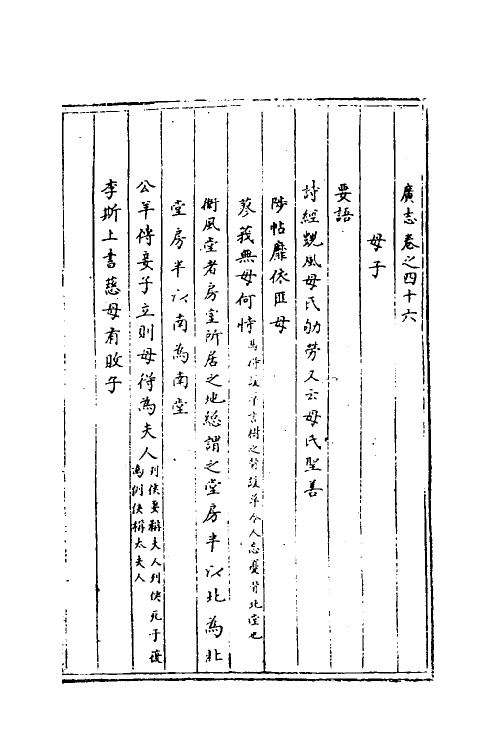 廣志卷之四十六
母子
要語
詩經覬風母氏劬勞又云母氏聖善
陟岵靡依匪母
蓼莪無母何恃
言樹之背諼草令人忘憂背北堂也
衛風堂者房室所居之地總謂之堂房半以北為北
堂房半以南為南堂
公羊傳妾子立則母得為夫人
列侯妻稱夫人列侯死子復
為列侯稱太夫人
李斯上書慈母有敗子